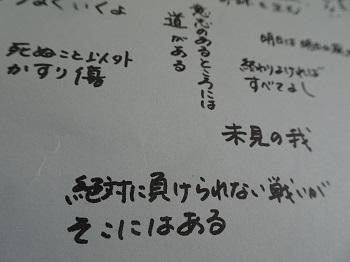 まくいくよ
死ぬこと以外
かすり傷
心のあるところには
道がある
終わりよければ
すべてよし
未見の我
絶対に負けられない戦いが
そこにはある